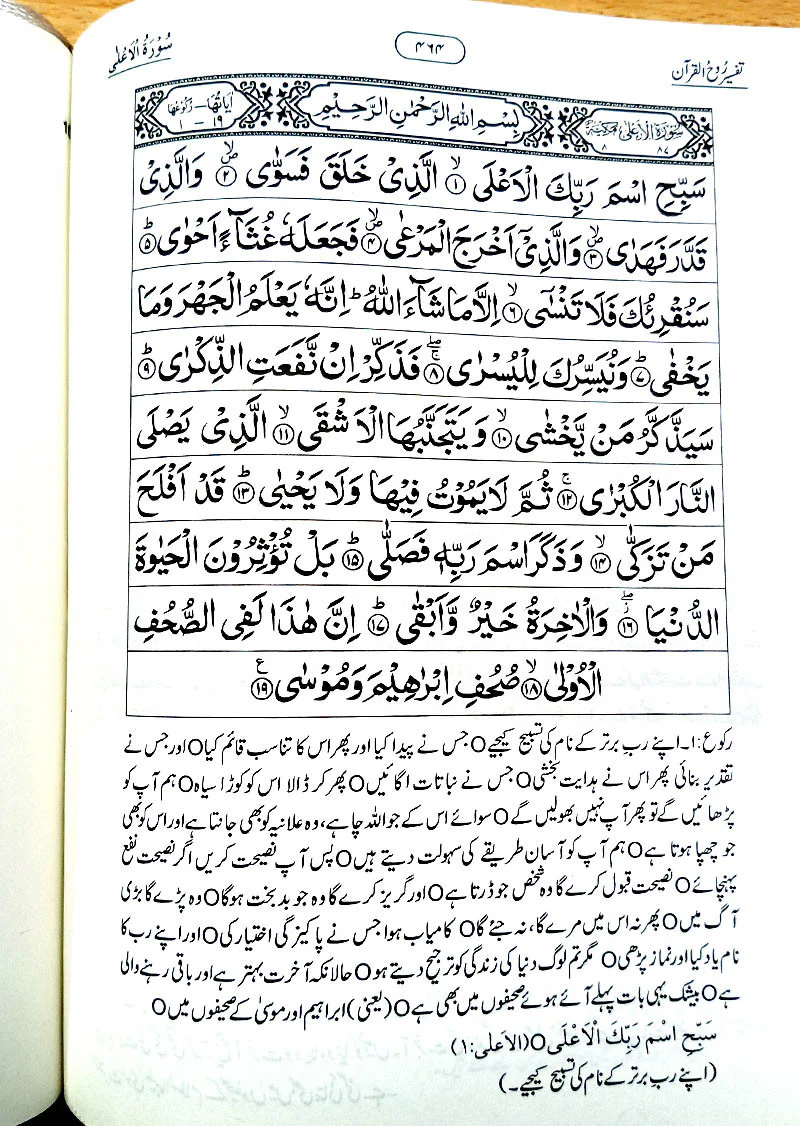 تفسیر رُوح القرآن
۴۶۴
سُوْرَةُ الْاَعْلٰى
سُوْرَةُ الْاَعْلٰى مَكِّيَّةٌ
۸۷ ۸
بِسْمِ اللّٰهِ الرَّحْمٰنِ الرَّحِيْمِ
اٰيَاتُهَا - رُكُوْعُهَا
۱۹ - ۱
سَبِّحِ اسْمَ رَبِّكَ الْاَعْلَى ۙ﴿۱﴾ الَّذِىْ خَلَقَ فَسَوّٰى ۪ۙ﴿۲﴾ وَالَّذِىْ
قَدَّرَ فَهَدٰى ۪ۙ﴿۳﴾ وَالَّذِىْۤ اَخْرَجَ الْمَرْعٰى ۪ۙ﴿۴﴾ فَجَعَلَهٗ غُثَآءً اَحْوٰى ؕ﴿۵﴾
سَنُقْرِئُكَ فَلَا تَنْسٰٓى ۙ﴿۶﴾ اِلَّا مَا شَآءَ اللّٰهُ ؕ اِنَّهٗ يَعْلَمُ الْجَهْرَ وَمَا
يَخْفٰى ؕ﴿۷﴾ وَنُيَسِّرُكَ لِلْيُسْرٰى ۚۖ﴿۸﴾ فَذَكِّرْ اِنْ نَّفَعَتِ الذِّكْرٰى ؕ﴿۹﴾
سَيَذَّكَّرُ مَنْ يَّخْشٰى ۙ﴿۱۰﴾ وَيَتَجَنَّبُهَا الْاَشْقَى ۙ﴿۱۱﴾ الَّذِىْ يَصْلَى
النَّارَ الْكُبْرٰى ۚ﴿۱۲﴾ ثُمَّ لَا يَمُوْتُ فِيْهَا وَلَا يَحْيٰى ؕ﴿۱۳﴾ قَدْ اَفْلَحَ
مَنْ تَزَكّٰى ۙ﴿۱۴﴾ وَذَكَرَ اسْمَ رَبِّهٖ فَصَلّٰى ؕ﴿۱۵﴾ بَلْ تُؤْثِرُوْنَ الْحَيٰوةَ
الدُّنْيَا ۖ﴿۱۶﴾ وَالْاٰخِرَةُ خَيْرٌ وَّاَبْقٰى ؕ﴿۱۷﴾ اِنَّ هٰذَا لَفِى الصُّحُفِ
الْاُوْلٰى ۙ﴿۱۸﴾ صُحُفِ اِبْرٰهِيْمَ وَمُوْسٰى ﴿۱۹﴾ ع
رکوع:۱۔ اپنے رب برتر کے نام کی تسبیح کیجیے O جس نے پیدا کیا اور پھر اس کا تناسب قائم کیا O اور جس نے
تقدیر بنائی پھر اس نے ہدایت بخشی O جس نے نباتات اگائیں O پھر کر ڈالا اس کو کوڑا سیاہ O ہم آپ کو
پڑھائیں گے تو پھر آپ نہیں بھولیں گے O سوائے اس کے جو اللہ چاہے، وہ علانیہ کو بھی جانتا ہے اور اس کو بھی
جو چھپا ہوتا ہے O ہم آپ کو آسان طریقے کی سہولت دیتے ہیں O پس آپ نصیحت کریں اگر نصیحت نفع
پہنچائے O نصیحت قبول کرے گا وہ شخص جو ڈرتا ہے O اور گریز کرے گا وہ جو بد بخت ہوگا O وہ پڑے گا بڑی
آگ میں O پھر نہ اس میں مرے گا، نہ جئے گا O کامیاب ہوا جس نے پاکیزگی اختیار کی O اور اپنے رب کا
نام یاد کیا اور نماز پڑھی O مگر تم لوگ دنیا کی زندگی کو ترجیح دیتے ہو O حالانکہ آخرت بہتر ہے اور باقی رہنے والی
ہے O بیشک یہی بات پہلے آئے ہوئے صحیفوں میں بھی ہے O (یعنی) ابراہیم اور موسیٰ کے صحیفوں میں O
سَبِّحِ اسْمَ رَبِّكَ الْاَعْلَى O (الاعلی:۱)
(اپنے رب برتر کے نام کی تسبیح کیجیے۔)